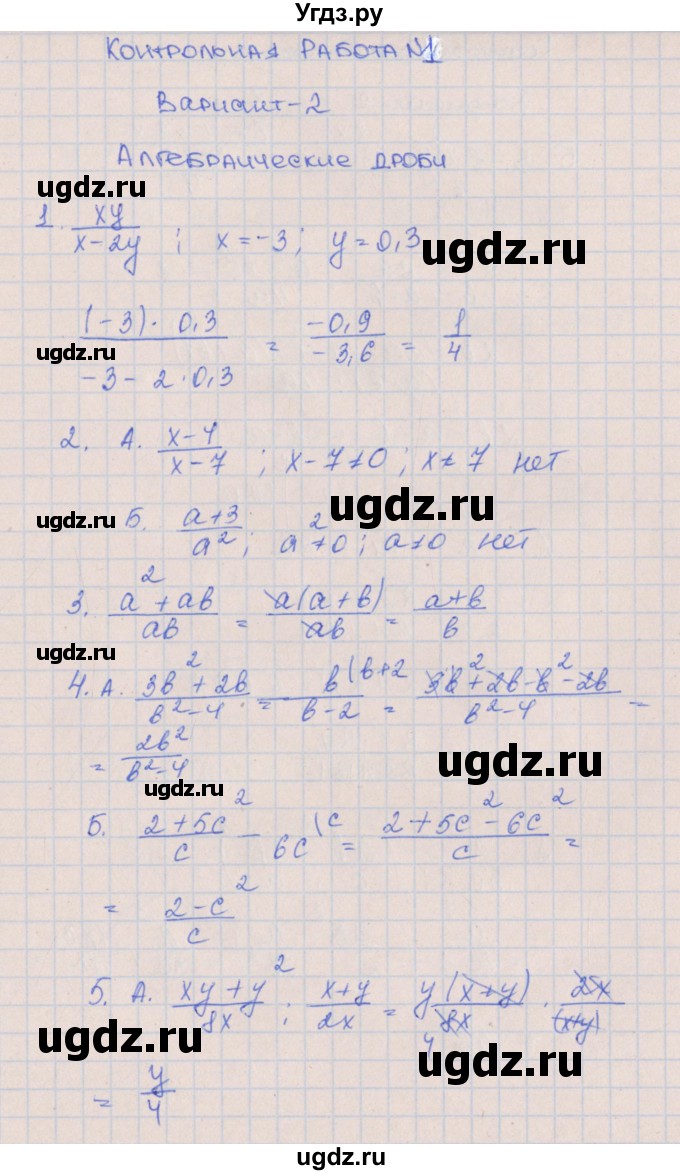 Угдз.ру
КОНТРОЛЬНАЯ РАБОТА №1
Вариант-2
АЛГЕБРАИЧЕСКИЕ ДРОБИ
ugdz.ru
1. xy/(x-2y) ; x=-3; y=0,3
ugdz.ru
((-3)·0,3)/(-3-2·0,3) = -0,9/-3,6 = 1/4
ugdz.ru
2. А. (x-4)/(x-7) ; x-7≠0; x≠7 нет
ugdz.ru ugdz.ru
Б. (a+3)/a²; a²≠0; a≠0 нет
3. (a²+ab)/ab = a(a+b)/ab = (a+b)/b
ugdz.ru
4. А. (3b²+2b)/(b²-4) - b/(b-2) \b+2 = (3b²+2b-b²-2b)/(b²-4) =
= 2b²/(b²-4)
ugdz.ru
ugdz.ru
Б. (2+5c²)/c - 6c \c = (2+5c²-6c²)/c =
ugdz.ru
= (2-c²)/c
5. А. (xy+y²)/8x : (x+y)/2x = y(x+y)/8x · 2x/(x+y)
4
ugdz.ru ugdz.ru
= y/4
ugdz.ru
Угдз.ру